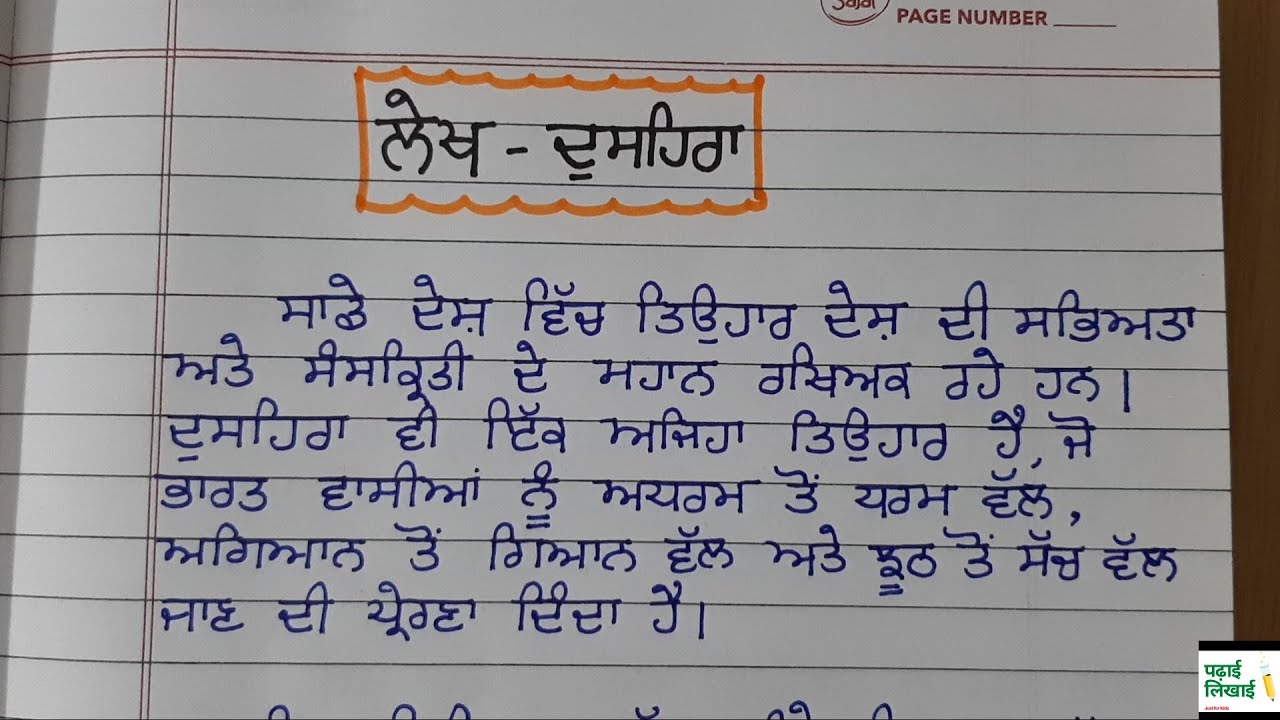 Sajal
PAGE NUMBER
ਲੇਖ - ਦੁਸਹਿਰਾ
ਸਾਡੇ ਦੇਸ਼ ਵਿੱਚ ਤਿਉਹਾਰ ਦੇਸ਼ ਦੀ ਸਭਿਅਤਾ
ਅਤੇ ਸੰਸਕ੍ਰਿਤੀ ਦੇ ਮਹਾਨ ਰਖਿਅਕ ਰਹੇ ਹਨ।
ਦੁਸਹਿਰਾ ਵੀ ਇੱਕ ਅਜਿਹਾ ਤਿਉਹਾਰ ਹੈ, ਜੋ
ਭਾਰਤ ਵਾਸੀਆਂ ਨੂੰ ਅਧਰਮ ਤੋਂ ਧਰਮ ਵੱਲ,
ਅਗਿਆਨ ਤੋਂ ਗਿਆਨ ਵੱਲ ਅਤੇ ਝੂਠ ਤੋਂ ਸੱਚ ਵੱਲ
ਜਾਣ ਦੀ ਪ੍ਰੇਰਣਾ ਦਿੰਦਾ ਹੈ।
पढ़ाई
लिखाई
Just for Kids